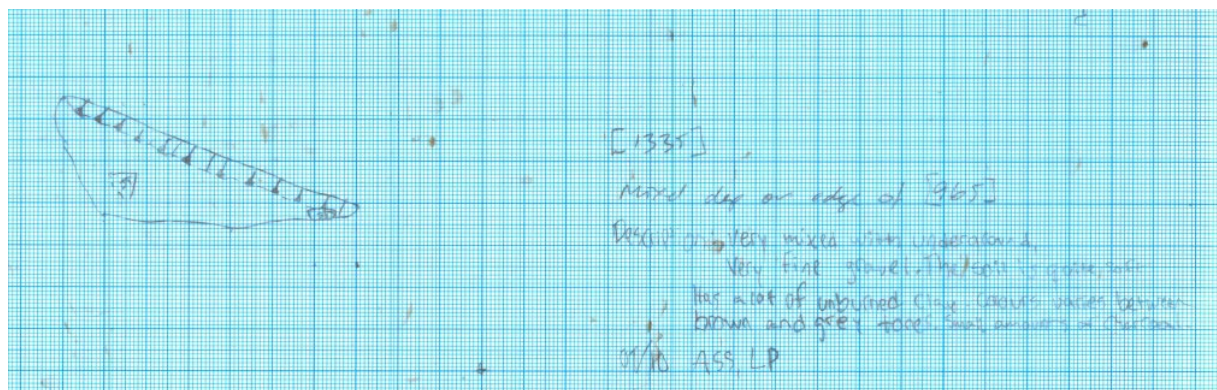 [1335]
Mixed dep on edge of [965]
Description: Very mixed with underground,
Very fine gravel. The soil is quite soft
Has a lot of unburned clay. Colour varies between
brown and grey tones. Small amounts of Charcoal.
ASS, LP